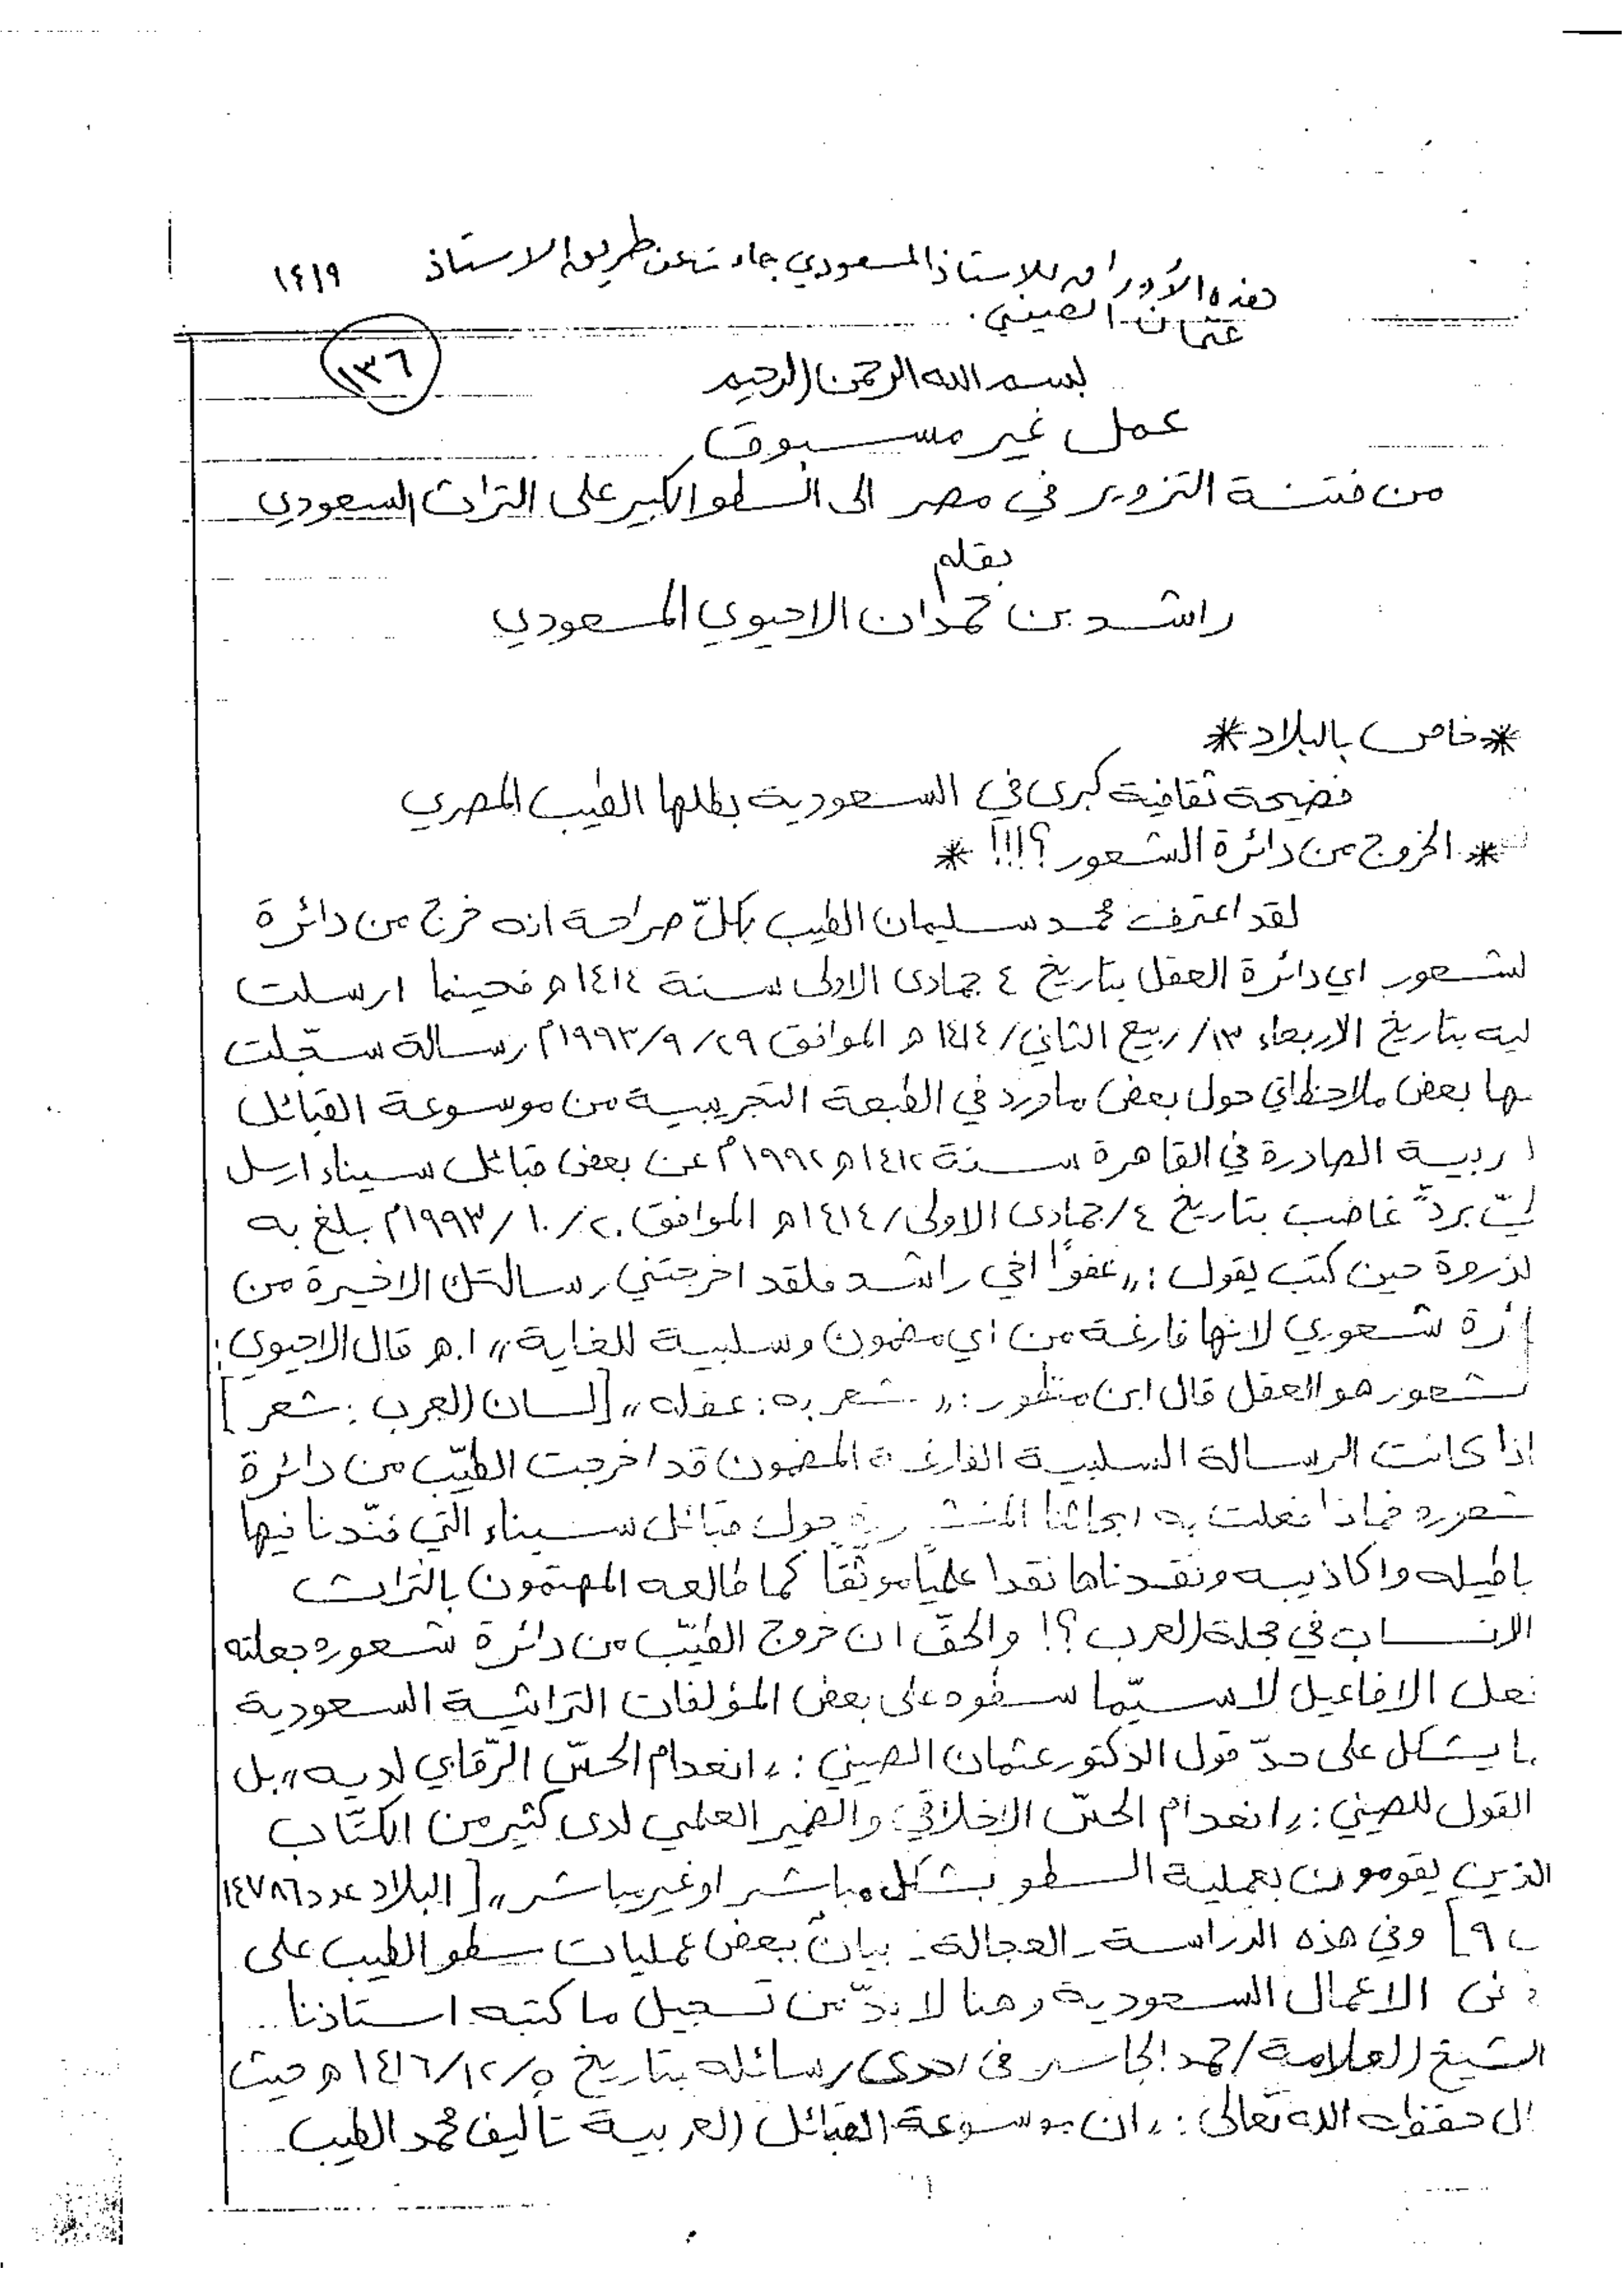 هذه الأوراق للاستاذ المسعودي جاءت عن طريق الاستاذ ١٤١٩
عثمان الصيني.
١٣٦
بسم الله الرحمن الرحيم
عمل غير مسبوق
من فتنة التزوير في مصر الى السطو الكبير على التراث السعودي
بقلم
راشد بن حمدان الاحيوي المسعودي
*خاص بالبلاد*
فضيحة ثقافية كبرى في السعودية بطلها الطيب المصري
* الخروج من دائرة الشعور؟!!! *
لقد اعترف محمد سليمان الطيب بكلّ صراحة انه خرج من دائرة
لشعور اي دائرة العقل بتاريخ ٤ جمادى الاولى سنة ١٤١٤ه فحينما ارسلت
ليه بتاريخ الاربعاء ١٣/ربيع الثاني/١٤١٤ه الموافق ٢٩/٩/١٩٩٣م رسالة سجّلت
بها بعض ملاحظاتي حول بعض ما ورد في الطبعة التجريبية من موسوعة القبائل
ربية الصادرة في القاهرة سنة ١٤١٢ه ١٩٩٢م عن بعض قبائل سيناء ارسل
ليّ بردّ غاضب بتاريخ ٤/جمادى الاولى/١٤١٤ه الموافق ٢٠/١٠/١٩٩٣م بلغ به
لذروة حين كتب يقول: „عفوًا اخي راشد فلقد اخرجتني رسالتك الاخيرة من
ائرة شعوري لانها فارغة من اي مضمون وسلبية للغاية„ ا.ه قال الاحيوي:
لشعور هو العقل قال ابن منظور: „شعر به: عقله„ [لسان العرب: شعر]
اذا كانت الرسالة السلبية الفارغة المضمون قد اخرجت الطيّب من دائرة
شعوره فماذا فعلت به ابحاثنا المنشورة حول قبائل سيناء التي فنّدنا فيها
باطيله واكاذيبه ونقدناها نقدا علميًا موثّقاً كما طالعه المهتمون بالتراث
الانساب في مجلة العرب؟! والحقّ ان خروج الطيّب من دائرة شعوره جعلته
فعل الافاعيل لا سيّما سطوه على بعض المؤلفات التراثية السعودية
ما يشكل على حدّ قول الدكتور عثمان الصيني: „انعدام الحسّ الرّقابي لديه„ بل
القول للصيني: „انعدام الحسّ الاخلاقي والضمير العلمي لدى كثير من الكتّاب
الذين يقومون بعملية السطو بشكل مباشر او غير مباشر„ [البلاد عدد ١٤٧٨٦
٩] وفي هذه الدراسة ـ العجالة ـ بيان بعض عمليات سطو الطيب على
الاعمال السعودية وهنا لا بدّ من تسجيل ما كتبه استاذنا..
الشيخ العلامة/حمد الجاسر في احدى رسائله بتاريخ ٥/١٢/١٤١٦ه حيث
ال حفظه الله تعالى: „ان موسوعة القبائل العربية تأليف محمد الطيب